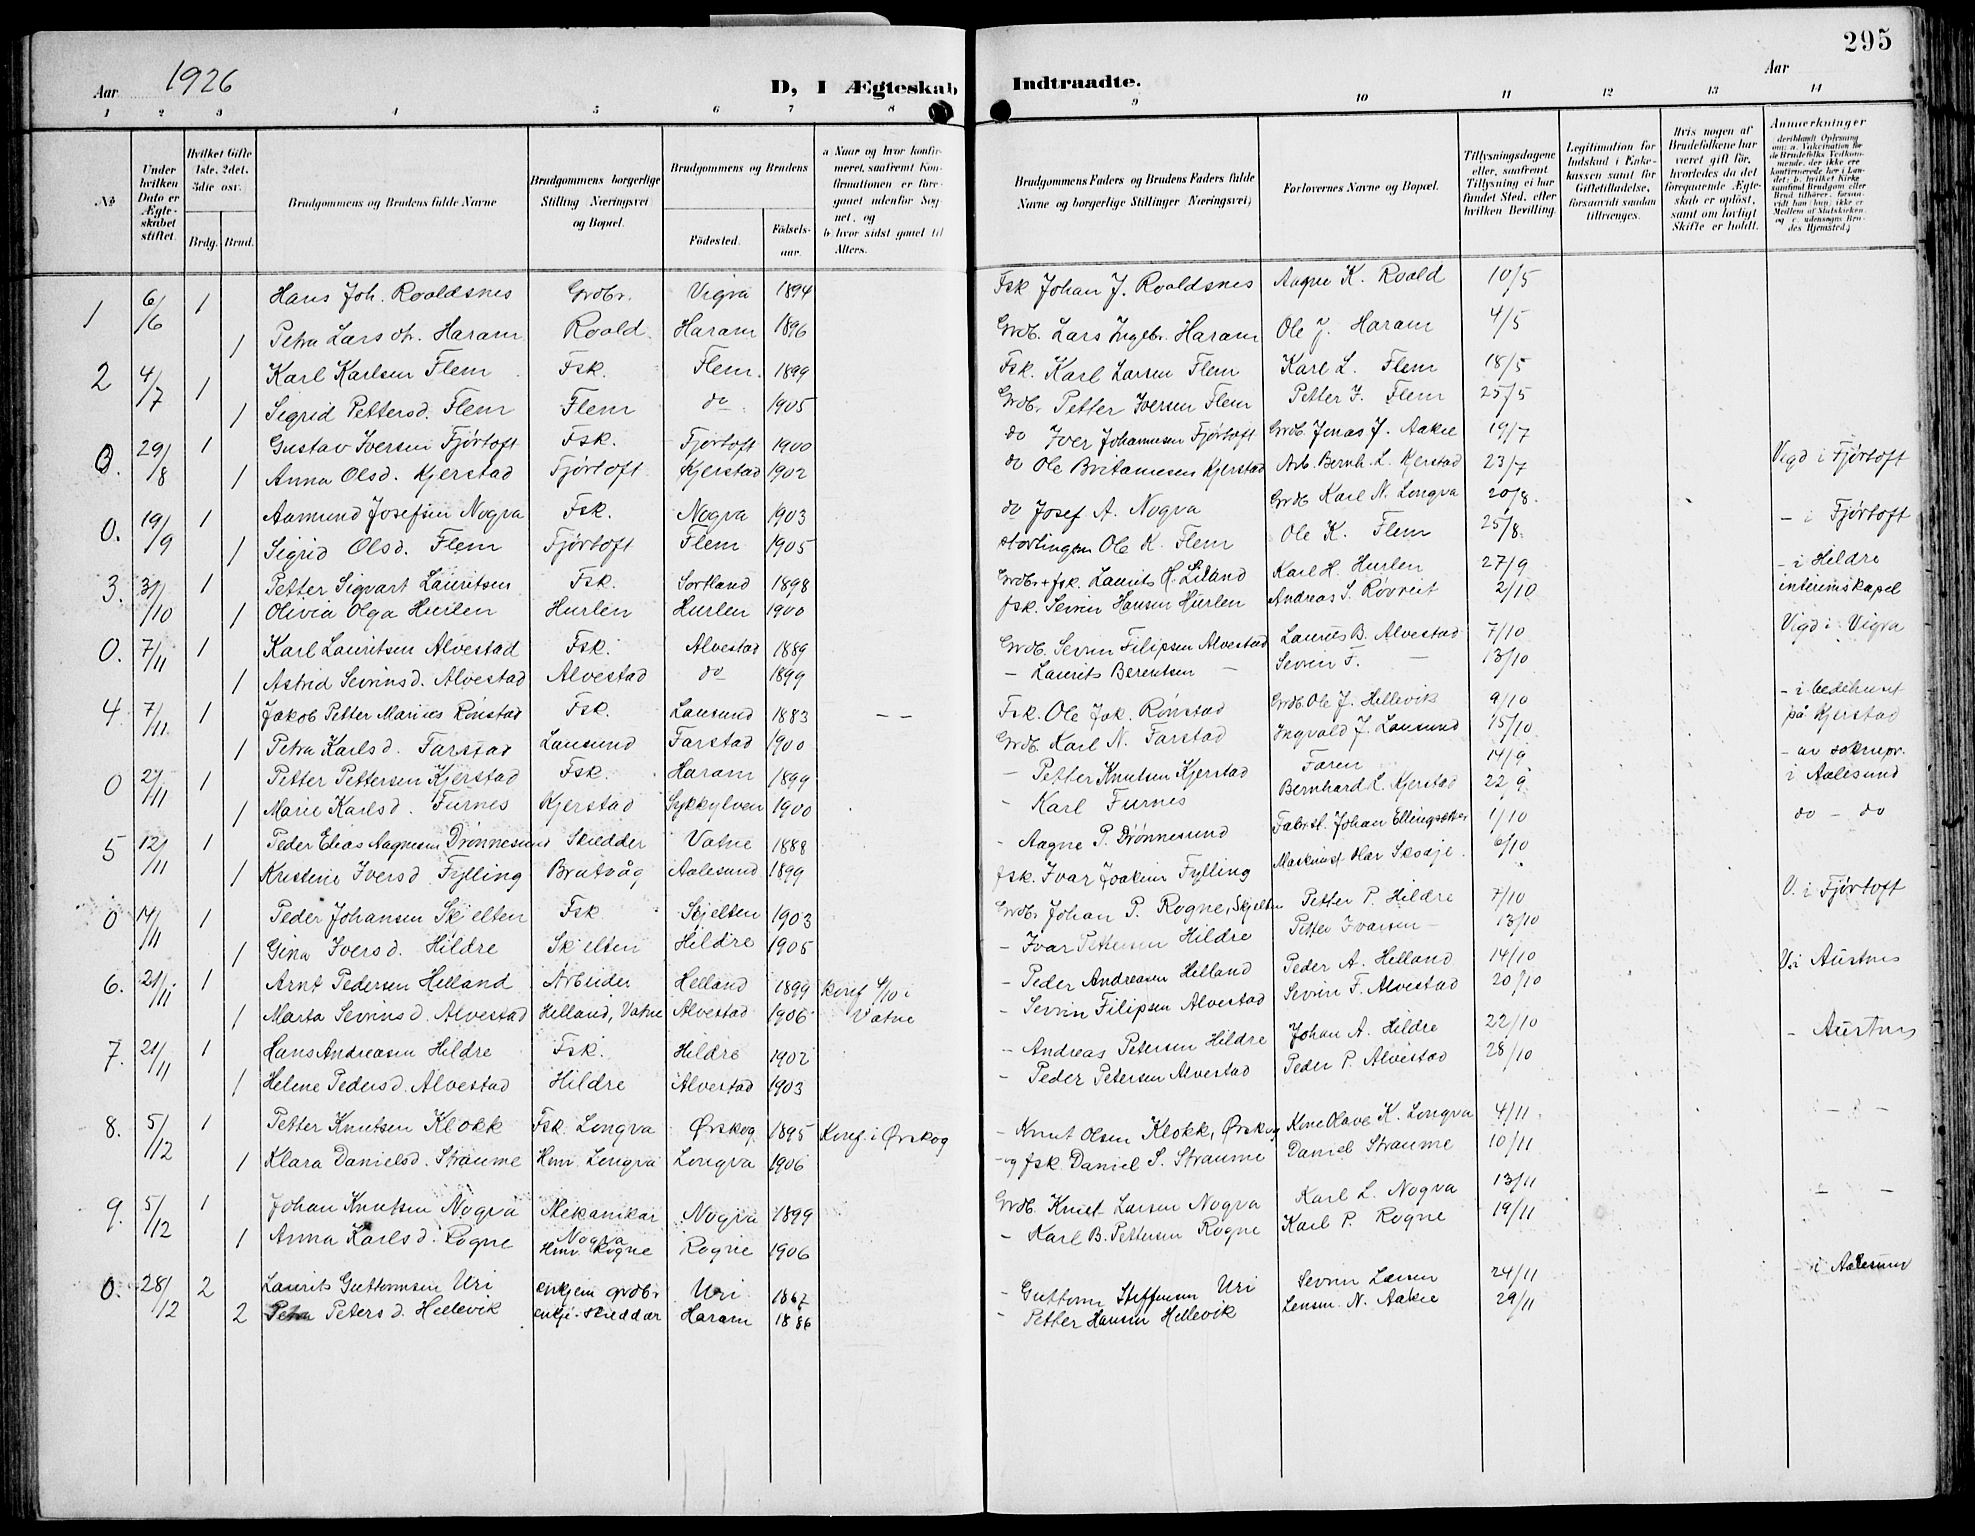 295
Aar 1926
D, I Ægteskab Indtraadte.
Aar
1 2 3 4 5 6 7 8 9 10 11 12 13 14
No
Under hvilken Dato er Ægteskabet stiftet.
Hvilket Gifte 1ste, 2det, 3die osv.
Brdg. Brud.
Brudgommens og Brudens fulde Navne
Brudgommens borgerlige Stilling Næringsvei og Bopæl.
Brudgommens og Brudens
Födested. Födselsaar.
a Naar og hvor konfirmeret, saafremt Konfirmationen er foregaaet udenfor Sognet, og
b hvor sidst gaaet til Alters.
Brudgommens Faders og Brudens Faders fulde Navne og borgerlige Stillinger Næringsvei)
Forlovernes Navne og Bopæl.
Tillysningsdagene eller, saafremt Tillysning ei har fundet Sted, efter hvilken Bevilling.
Legitimation for Indskud i Enkekassen samt for Giftetilladelse, forsaavidt saadan tiltrænges.
Hvis nogen af Brudefolkene har været gift för, hvorledes da det foregaaende Ægteskab er oplöst, samt om lovligt Skifte er holdt.
Anmærkninger
1 6/6 1 Hans Joh. Roaldsnes Grdbr. Vigra 1894 Fsk Johan J. Roaldsnes Aagne K. Roald 10/5
1 Petra Lars dt. Haram Roald. Haram 1896 Grdb. Lars Ingebr. Haram Ole J. Haram 4/5
2 4/7 1 Karl Karlsen Flem Fsk. Flem. 1899 Fsk. Karl Larsen Flem Karl L. Flem 18/5
1 Sigrid Pettersd. Flem Flem do 1905 Grdb. Petter Iversen Flem Petter I. Flem 25/5
0. 29/8 1 Gustav Iversen Fjørtoft Fsk. Fjørtoft 1900 do Iver Johannesen Fjørtoft Grdb. Jonas J. Aakre 19/7
1 Anna Olsd. Kjerstad Fjørtoft Kjerstad 1902 do Ole Britamesen Kjerstad Arb. Bernh. L. Kjerstad 23/7 Vigd i Fjørtoft
0. 19/9 1 Aamund Josefsen Nogva Fsk. Nogva 1903 do Josef A. Nogva Grdb Karl N. Longva 20/8.
1 Sigrid Olsd. Flem Fjørtoft Flem 1905 stortingsm Ole K. Flem Ole K. Flem 25/8. - i Fjørtoft
3. 31/10 1 Petter Sigvart Lauritsen Fsk. Sortland 1898 Grdbr + fsk. Laurits H. Liland Karl H. Hurlen 27/9 - i Hildre
1 Olivia Olga Hurlen Hurlen Hurlen 1900 fsk. Sevrin Hansen Hurlen Andreas S. Røvreit 2/10 interimskapel
0. 7/11 1 Karl Lauritsen Alvestad Fsk. Alvestad 1889 Grdb. Sevrin Filipsen Alvestad Laurits B. Alvestad 7/10 Vigd i Vigra
1 Astrid Sevrinsd. Alvestad Alvestad do 1899 - Laurits Berentsen - Sevrin F. - 13/10
4. 7/11 1 Jakob Petter Marius Rønstad Fsk. Lausund 1883 - - Fsk. Ole Jak. Rønstad Grdb. Ole J. Hellevik 9/10 - i bedehuset
1 Petra Karlsd. Farstad Lausund Farstad 1900 Grdb. Karl N. Farstad Ingvald J. Lausund 15/10 på Kjerstad
0 21/11 1 Petter Pettersen Kjerstad Fsk. Haram 1899 - Petter Knutsen Kjerstad Faren 14/9 - av soknepr.
1 Marie Karlsd. Furnes Kjerstad Sykkylven 1900 - Karl Furnes Bernhard L. Kjerstad 22/9 i Aalesund
5 12/11 1 Peder Elias Aagnesen Drønnesund Skredder Vatne 1888 - Aagne P. Drønnesund Fabrst. Johan Ellingsæter 1/10 do - do
1 Kristine Iversd. Fylling Brattvåg Aalesund 1899 fsk. Ivar Joakim Fylling Maskinist Olav Skodje. 6/10
0 14/11 1 Peder Johansen Skjelten Fsk. Skjelten 1903 Grdbr Johan P. Rogne, Skjelten Petter P. Hildre 7/10 V. i Fjørtoft
1 Gina Iversd. Hildre Skjelten Hildre 1905 - Ivar Pettersen Hildre Petter Ivarsen - 13/10
6. 21/11 1 Arnt Pedersen Helland Arbeider Helland 1899 konf. 4/10 i - Peder Andreasen Helland Peder A. Helland 14/10 V. i Austnes
1 Marta Sevrinsd. Alvestad Helland, Vatne Alvestad 1906 Vatne - Sevrin Filipsen Alvestad Sevrin F. Alvestad 20/10
7. 21/11 1 Hans Andreasen Hildre Fsk. Hildre 1902 - Andreas Petersen Hildre Johan A. Hildre 22/10 - Austnes
1 Helene Pedersd. Alvestad Hildre Alvestad 1903 - Peder Petersen Alvestad Peder P. Alvestad 28/10
8. 5/12 1 Petter Knutsen Klokk Fsk. Longva Ørskog 1895 Konf. i Ørskog - Knut Olsen Klokk, Ørskog Kone Olave K. Longva 4/11. - - -
1 Klara Danielsd. Straume Hmv. Longva Longva 1906 - og fsk. Daniel S. Straume Daniel Straume 10/11
9. 5/12 1 Johan Knutsen Nogva Mekanikar Nogva Nogva 1899 Grdb. Knut Larsen Nogva Karl L. Nogva 13/11 - -
1 Anna Karlsd. Rogne Hmv. Rogne Rogne 1906 - Karl B. Pettersen Rogne Karl P. Rogne 19/11
0. 28/12 2 Laurits Guttormsen Uri enkjem grdbr Uri 1867 - Guttorm Steffensen Uri Sevrin Larsen 24/11 - i Aalesund
2 Petra Petersd. Hellevik enkje - skreddar Haram 1886 - Petter Hansen Hellevik Lensm. N. Aakre 29/11